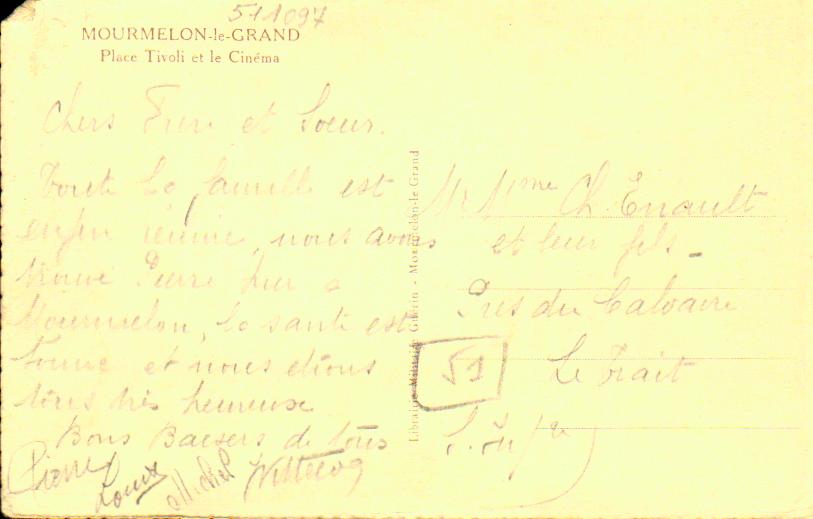 511097
MOURMELON-le-GRAND
Place Tivoli et le Cinéma
Chers Frere et Soeur.
Toute la famille est
enfin réunie, nous avons
trouvé Pierre hier a
Mourmelon, la santé est
bonne et nous etions
tous très heureuse
Bons Baisers de tous
Pierre
Michel
Librairie Militaire Guérin - Mourmelon-le-Grand
Mr Mme Ch. Enault
et leur fils
Pres du Calvaire
Le Trait
51
S. Infre